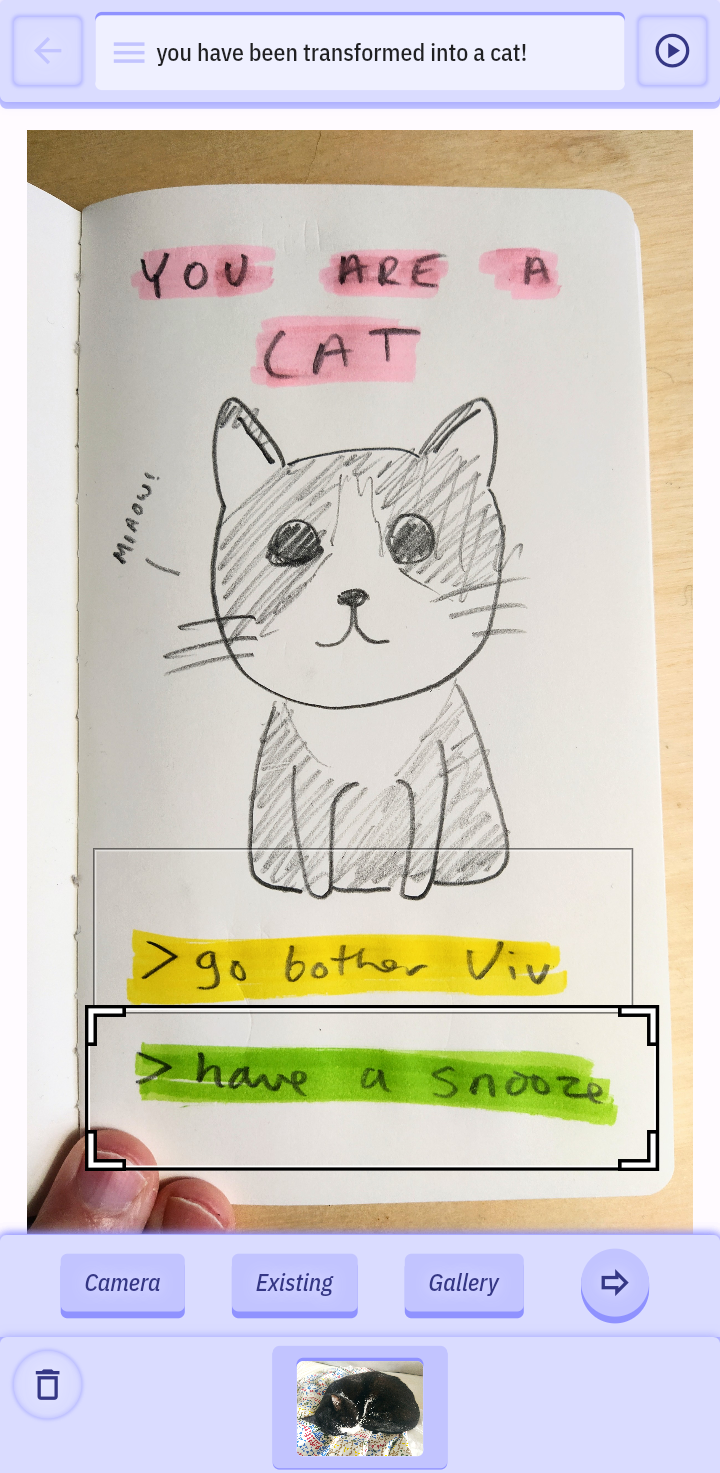 you have been transformed into a cat!
YOU ARE A
CAT
MIAOW!
>go bother Viv
>have a snooze
Camera Existing Gallery